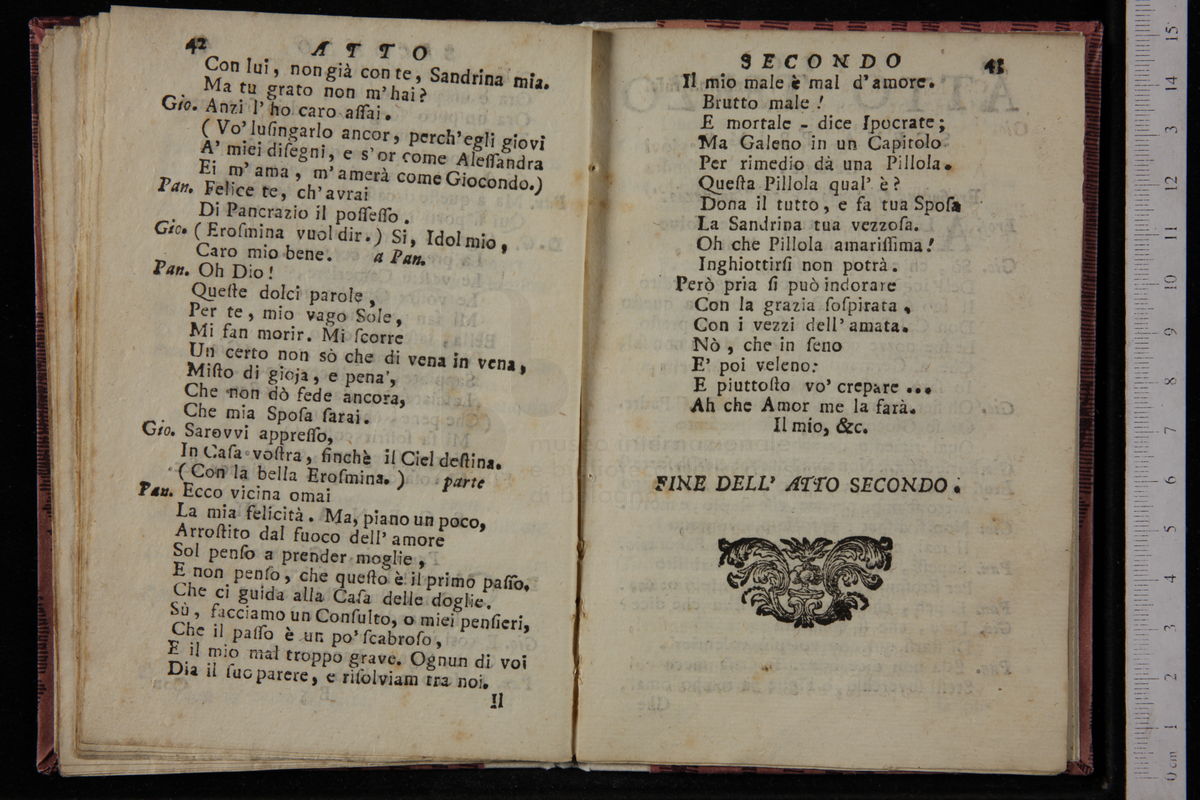 42
ATTO
Con lui, non già con te, Sandrina mia.
Ma tu grato non m'hai?
Gio. Anzi l'ho caro aſſai.
(Vo' luſingarlo ancor, perch'egli giovi
A' miei diſegni, e s'or come Aleſſandra
Ei m'ama, m'amerà come Giocondo.)
Pan. Felice te, ch'avrai
Di Pancrazio il poſſeſſo.
Gio. (Eroſmina vuol dir.) Si, Idol mio,
Caro mio bene. a Pan.
Pan. Oh Dio!
Queſte dolci parole,
Per te, mio vago Sole,
Mi fan morir. Mi ſcorre
Un certo non sò che di vena in vena,
Miſto di gioja, e pena',
Che non dò fede ancora,
Che mia Spoſa ſarai.
Gio. Sarovvi appreſſo,
In Caſa voſtra, finchè il Ciel deſtina.
(Con la bella Eroſmina.) parte
Pan. Ecco vicina omai
La mia felicità. Ma, piano un poco,
Arroſtito dal fuoco dell'amore
Sol penſo a prender moglie,
E non penſo, che queſto è il primo paſſo,
Che ci guida alla Caſa delle doglie.
Sù, facciamo un Conſulto, o miei penſieri,
Che il paſſo è un po' ſcabroſo,
E il mio mal troppo grave. Ognun di voi
Dia il ſuo parere, e riſolviam tra noi.
Il
SECONDO
43
Il mio male è mal d'amore.
Brutto male!
E mortale - dice Ipocrate;
Ma Galeno in un Capitolo
Per rimedio dà una Pillola.
Queſta Pillola qual' è?
Dona il tutto, e fa tua Spoſa
La Sandrina tua vezzoſa.
Oh che Pillola amariſſima!
Inghiottirſi non potrà.
Però pria ſi può indorare
Con la grazia ſoſpirata,
Con i vezzi dell'amata.
Nò, che in ſeno
E' poi veleno:
E piuttoſto vo' crepare ...
Ah che Amor me la farà.
Il mio, &c.
FINE DELL' ATTO SECONDO.
museo internazionale
e biblioteca della musica
di bologna
0 cm 1 2 3 4 5 6 7 8 9 10 11 12 13 14 15